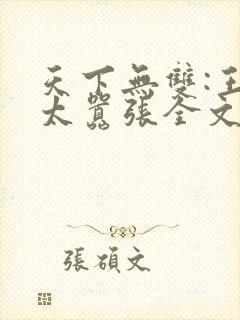 天下無雙:王
太囂張全文
張碩文